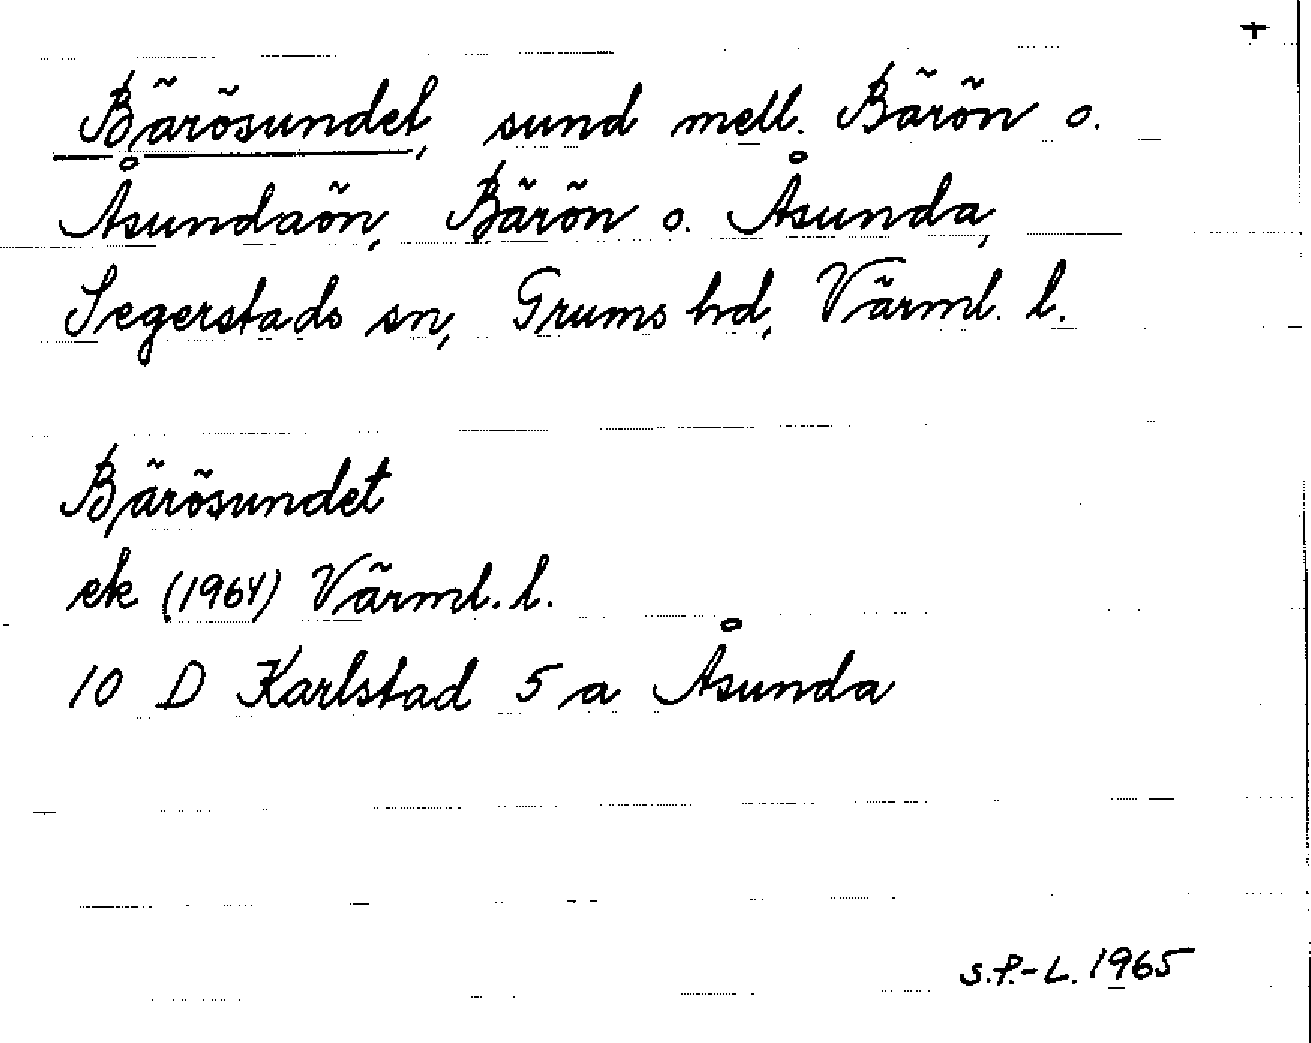 +
Bärösundet, sund mell. Bärön o.
Åsundaön, Bärön o. Åsunda,
Segerstads sn, Grums hd, Värml. l.
Bärösundet
ek (1964) Värml. l.
10 D Karlstad 5 a Åsunda
S.P.-L. 1965